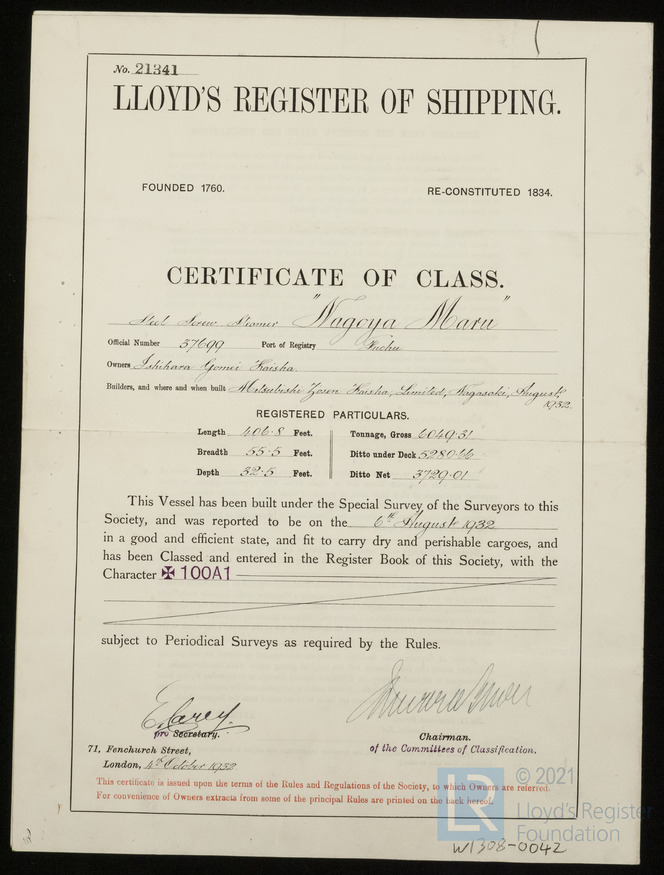 No. 21341
LLOYD'S REGISTER OF SHIPPING.
FOUNDED 1760. RE-CONSTITUTED 1834.
CERTIFICATE OF CLASS.
Steel Screw Steamer "Nagoya Maru"
Official Number 37699 Port of Registry Fuchu
Owners Ishihara Gomei Kaisha.
Builders, and where and when built Mitsubishi Zosen Kaisha, Limited, Nagasaki, August, 1932.
REGISTERED PARTICULARS.
Length 406.8 Feet. Tonnage, Gross 6049.31
Breadth 55.5 Feet. Ditto under Deck 5280.66
Depth 32.5 Feet. Ditto Net 3729.01
This Vessel has been built under the Special Survey of the Surveyors to this
Society, and was reported to be on the 6th August 1932
in a good and efficient state, and fit to carry dry and perishable cargoes, and
has been Classed and entered in the Register Book of this Society, with the
Character ✠ 100A1
subject to Periodical Surveys as required by the Rules.
pro Secretary.
Chairman.
of the Committees of Classification.
71, Fenchurch Street,
London, 4th October 1932
This certificate is issued upon the terms of the Rules and Regulations of the Society, to which Owners are referred.
For convenience of Owners extracts from some of the principal Rules are printed on the back hereof.
LR
© 2021
Lloyd's Register
Foundation
W1308-0042